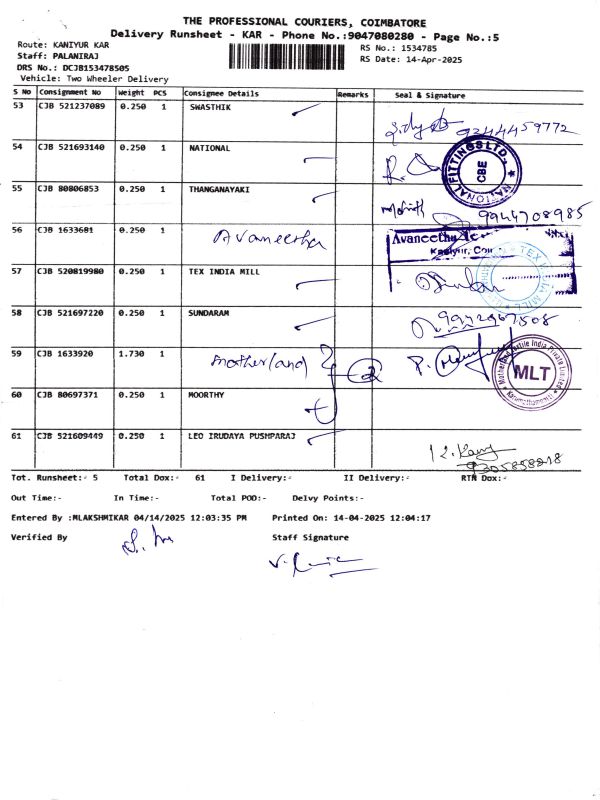 THE PROFESSIONAL COURIERS, COIMBATORE
Delivery Runsheet - KAR - Phone No.:9047080280 - Page No.:5
Route: KANIYUR KAR
RS No.: 1534785
Staff: PALANIRAJ
RS Date: 14-Apr-2025
DRS No.: DCJB153478505
Vehicle: Two Wheeler Delivery
S No Consignment No Weight PCS Consignee Details Remarks Seal & Signature
53 CJB 521237089 0.250 1 SWASTHIK
9344459772
54 CJB 521693140 0.250 1 NATIONAL
NATIONAL FITTINGS LTD. CBE
55 CJB 80806853 0.250 1 THANGANAYAKI
9944708985
56 CJB 1633681 0.250 1 Avaneetha
Avaneetha
Kaniyur,
57 CJB 520819980 0.250 1 TEX INDIA MILL
TEX INDIA MILL
58 CJB 521697220 0.250 1 SUNDARAM
9942967508
59 CJB 1633920 1.730 1 motherland 2
Motherland Textile India Private Limited
MLT
60 CJB 80697371 0.250 1 MOORTHY
61 CJB 521609449 0.250 1 LEO IRUDAYA PUSHPARAJ
9305858218
Tot. Runsheet:- 5 Total Dox:- 61 I Delivery:- II Delivery:- RTN Dox:-
Out Time:- In Time:- Total POD:- Delvy Points:-
Entered By :MLAKSHMIKAR 04/14/2025 12:03:35 PM Printed On: 14-04-2025 12:04:17
Verified By Staff Signature